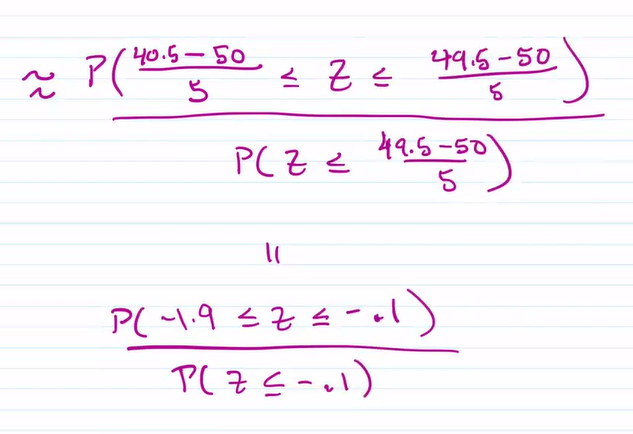 ≈ P( (40.5 – 50)/5 ≤ Z ≤ (49.5 – 50)/5 )
P( Z ≤ (49.5 – 50)/5 )
=
P( -1.9 ≤ Z ≤ -.1 )
P( Z ≤ -.1 )